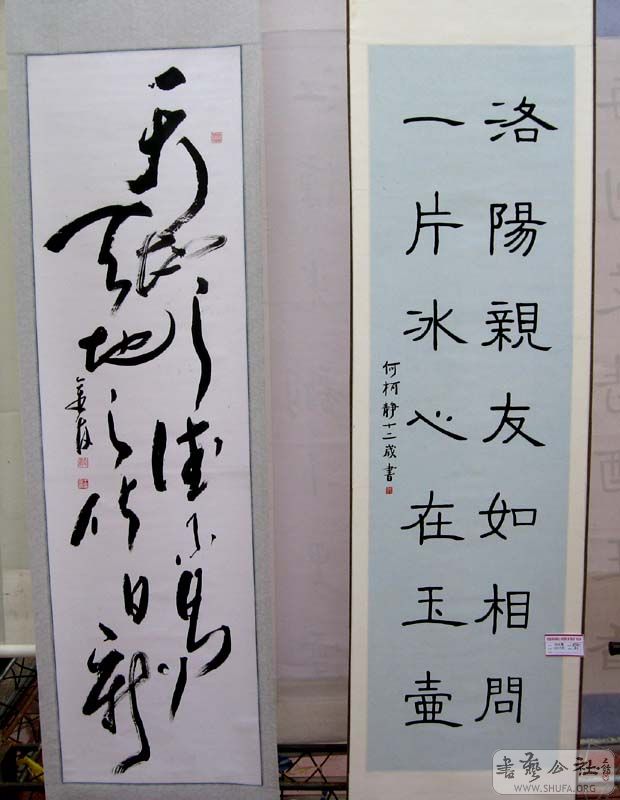 之德不
天地之化日新
洛陽親友如相問
一片冰心在玉壺
何柯静十二歲書
書藝公社
WWW.SHUFA.ORG